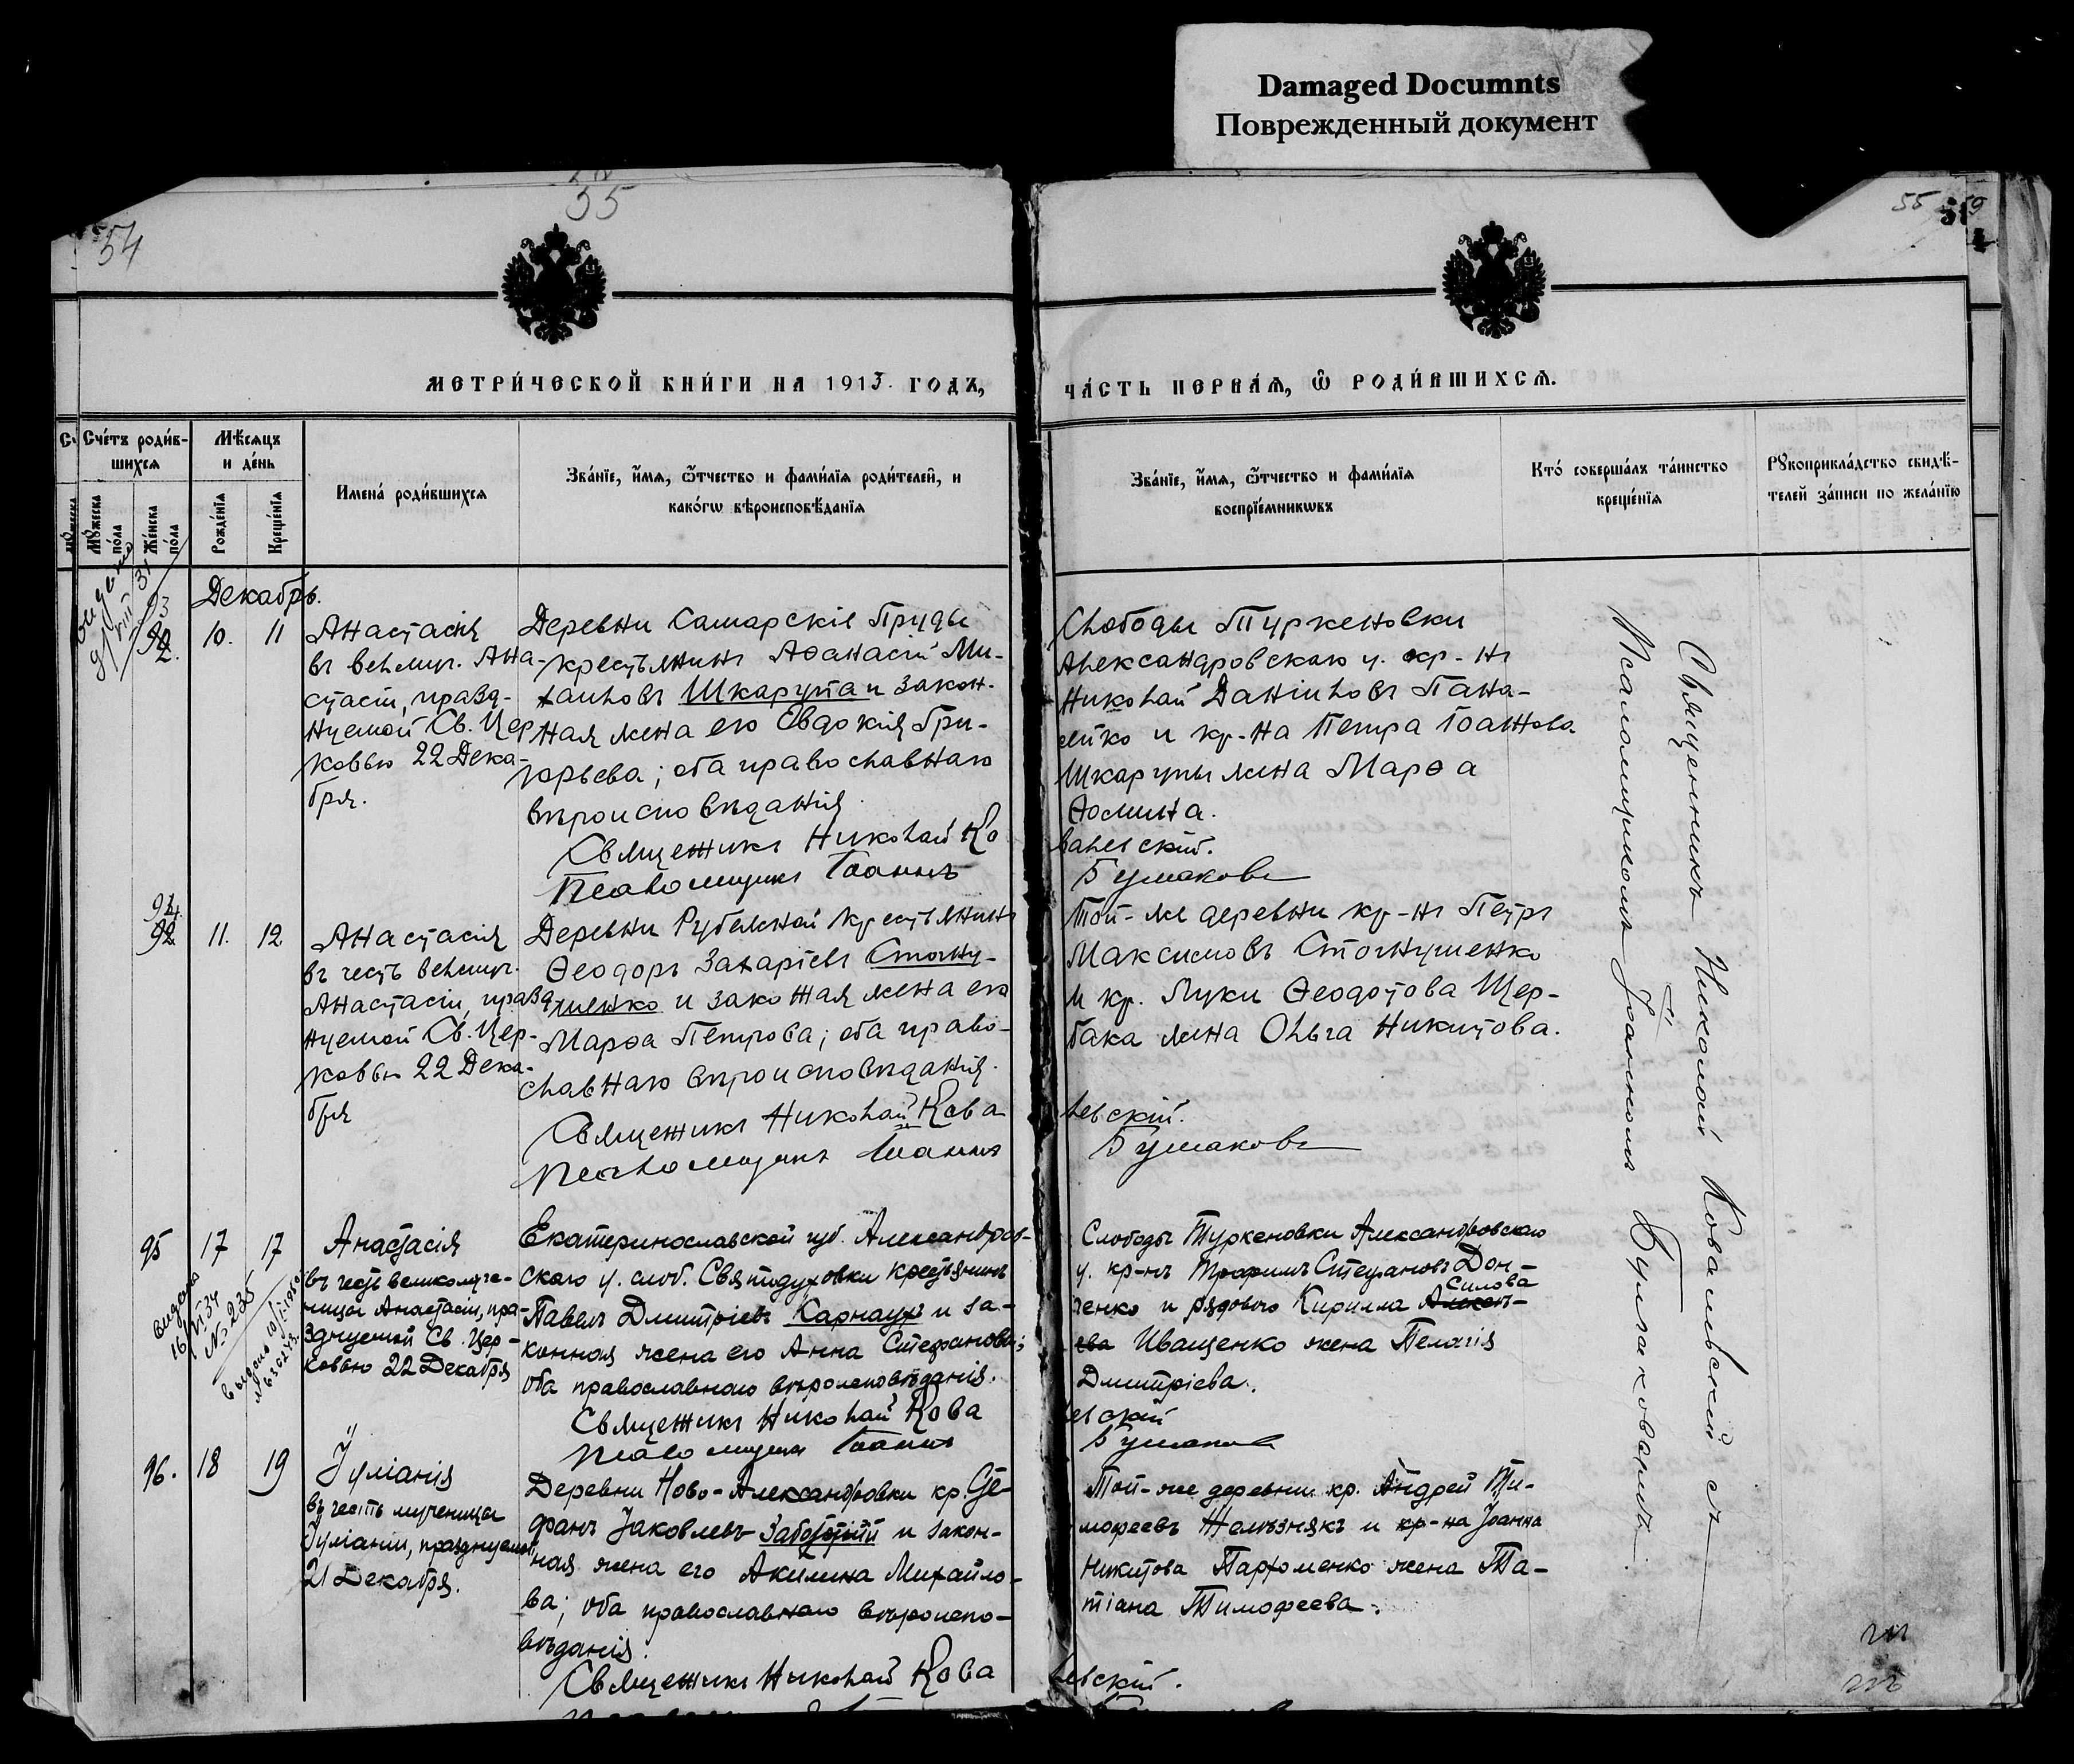 Damaged Documnts
Поврежденный документ
55
54
55
59
МЕТРИ́ЧЕСКОЙ КНИ́ГИ НА 1913. ГОДЪ,
ЧА́СТЬ ПЕРВАѦ, Ѽ РОДИ́ВШИХСѦ.
Сче́тъ роди́в-
шихсѧ
Мꙋжеска по́ла
Же́нска по́ла
Мѣ́сѧцъ
и де́нь
Рожде́нїѧ
Креще́нїѧ
Имена́ роди́вшихсѧ
Зва́нїе, и҆́мѧ, ѻ҆́тчество и фами́лїѧ роди́телей, и
како́гѡ вѣроисповѣ́данїѧ
Зва́нїе, и҆́мѧ, ѻ҆́тчество и фами́лїѧ
воспрїе́мникѡвъ
Кто́ соверша́лъ та́инство
креще́нїѧ
Рꙋкоприкла́дство свидѣ́-
телей за́писи по жела́нїю
Декабрь.
93
10.
11
Анастасія
въ велмуч. Ана-
стасіи, празд-
нуемой Св. Цер
ковью 22 Дека-
бря.
Деревни Самарскіе Пруды
крестьянинъ Аѳанасій Ми-
хаиловъ Шкарупа и закон-
ная жена его Евдокія Гри-
горьева; оба православнаго
вѣроисповѣданія.
Священникъ Николай Ко
Псаломщикъ Іоаннъ
Слободы Туркеновки
Александровскаго у. кр-нъ
Николай Даніиловъ Пана-
сейко и кр-на Петра Іоаннова
Шкарупы жена Марѳа
Ѳомина.
валевскій.
Булгаковъ
94
11.
12
Анастасія
въ честь велмуч.
Анастасіи, празд
нуемой Св. Цер-
ковью 22 Дека-
бря
Деревни Рубежной Крестьянинъ
Ѳеодоръ Захаріевъ Стогну-
шенко и законая жена его
Марѳа Петрова; оба право-
славнаго вѣроисповѣданія.
Священникъ Николай Кова
Псаломщикъ Іоаннъ
Той-же деревни кр-нъ Петръ
Максимовъ Стогнушенко
и кр. Луки Ѳеодотова Щер-
бака жена Ольга Никитова.
левскій.
Булгаковъ
95
17
17
выдана
16/VI 34
№ 235
Анастасія
въ честь великомуче-
ницы Анастасіи, пра-
зднуемой Св. Цер-
ковью 22 Декабря
Екатеринославской губ. Александров-
скаго у. слоб. Святодуховки крестьянинъ
Павелъ Дмитріевъ Карнаухъ и за-
конная жена его Анна Стефанова;
оба православнаго вѣроисповѣданія.
Священникъ Николай Кова
Псаломщикъ Іоаннъ
Слободы Туркеновки Александровскаго
у. кр-нъ Трофимъ Стефановъ Дон-
ченко и рядового Кирилла Алексѣ-
Силова
ева Иващенко жена Пелагія
Дмитріева.
левскій
Булгаковъ
96.
18
19
Іуліанія
въ честь мученицы
Іуліаніи, празднуемой
21 Декабря.
Деревни Ново-Александровки кр. Сте-
фанъ Іаковлевъ Заболотній и закон-
ная жена его Акилина Михайло-
ва; оба православнаго вѣроиспо-
вѣданія.
Священникъ Николай Кова
Той-же деревни кр. Андрей Ти-
мофеевъ Желѣзнякъ и кр-на Іоанна
Никитова Пархоменко жена Та-
тіана Тимофеева.
левскій.
Священникъ Николай Ковалевскій съ
Псаломщикомъ Іоанномъ Булгаковымъ.